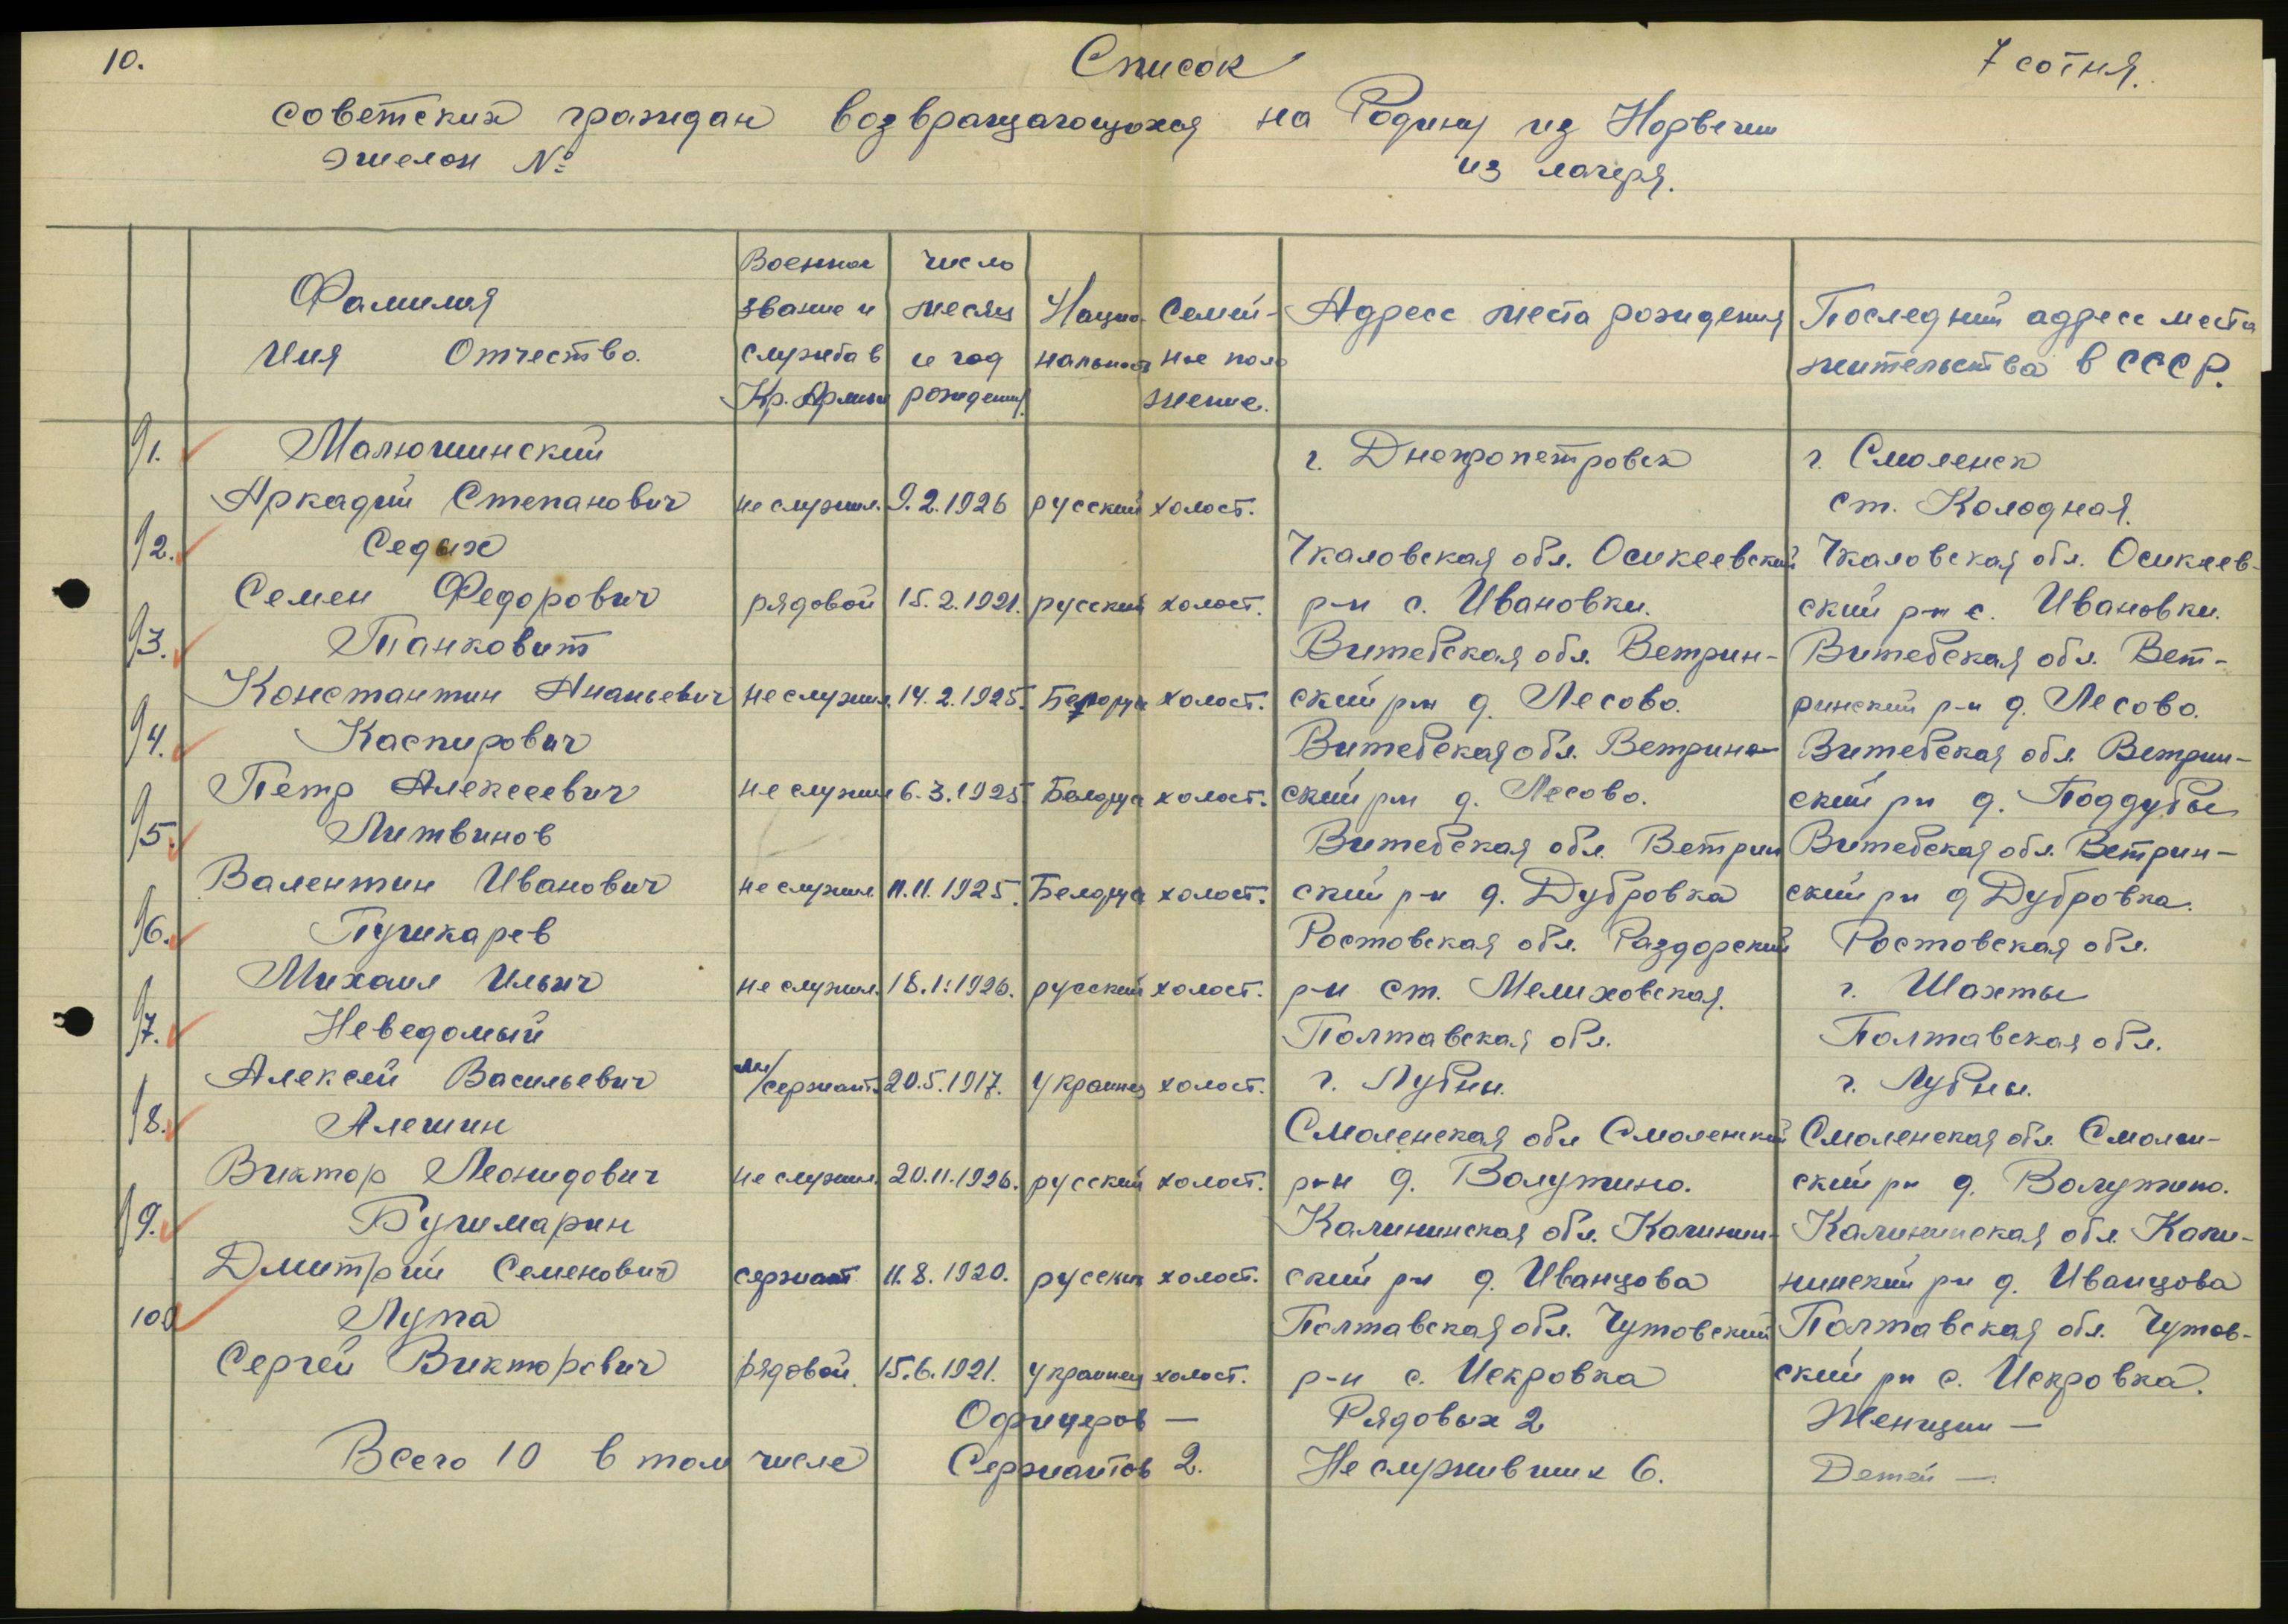 10. Список 7 сотня.
советских граждан возвращающихся на Родину из Норвегии
эшелон № из лагеря.
Фамилия Имя Отчество. Военное звание и служба в Кр. Армии число месяц и год рождения Нацио-нальност Семей-ное поло жение. Адресс места рождения Последний адресс места жительства в СССР.
91. Малюшинский г. Днепропетровск г. Смоленск
Аркадий Степанович не служил. 9.2.1926 русский холост. ст. Колодная.
92. Седых Чкаловская обл. Осикеевский Чкаловская обл. Осикеев-
Семен Федорович рядовой 15.2.1921. русский холост. р-н с. Ивановки. ский р-н с. Ивановки.
93. Танковит Витебская обл. Ветрин- Витебская обл. Вет-
Константин Ананьевич не служил. 14.2.1925. Белорус холост. ский р-н д. Лесово. ринский р-н д. Лесово.
94. Каспирович Витебская обл. Ветрин- Витебская обл. Ветрин-
Петр Алексеевич не служил 6.3.1925. Белорус холост. ский р-н д. Лесово. ский р-н д. Поддубы
95. Литвинов Витебская обл. Ветрин Витебская обл. Ветрин-
Валентин Иванович не служил 11.11.1925. Белорус холост. ский р-н д. Дубровка ский р-н д Дубровка.
96. Пушкарев Ростовская обл. Раздорский Ростовская обл.
Михаил Ильич не служил. 18.1.1926. русский холост. р-н ст. Мелиховская. г. Шахты
97. Неведомый Полтавская обл. Полтавская обл.
Алексей Васильевич мл/сержант. 20.5.1917. украинец холост. г. Лубны. г. Лубны.
98. Алешин Смоленская обл Смоленский Смоленская обл. Смолен-
Виктор Леонидович не служил. 20.11.1926. русский холост. р-н д. Волутино. ский р-н д. Волутино.
99. Бушмарин Калининская обл. Калинин- Калининская обл. Кали-
Дмитрий Семенович сержант 11.8.1920. русский холост. ский р-н д. Иванцова нинский р-н д. Иванцова
100 Лупа Полтавская обл. Чутовский Полтавская обл. Чутов-
Сергей Викторович рядовой. 15.6.1921. украинец холост. р-н с. Искровка ский р-н с. Искровка.
Офицеров — Рядовых 2 Женщин —
Всего 10 в том числе Сержантов 2. Не служивших 6. Детей —.